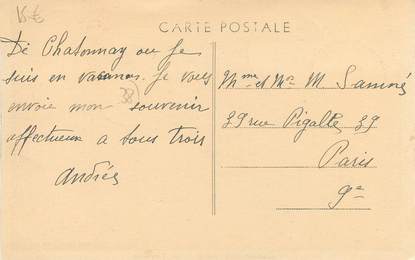 15 €
CARTE POSTALE
De Chatonnay ou je
suis en vacances. Je vous
envoie mon souvenir
38
affectueux a tous trois
Andrée
Mme et Mr M.
39 rue Pigalle 39
Paris
9e